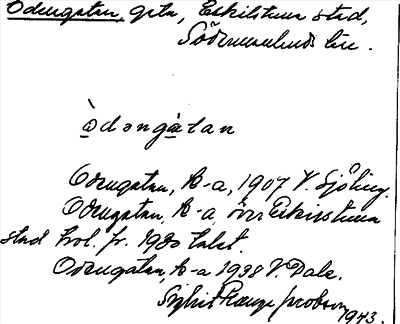 Odengatan, gata, Eskilstuna stad,
Södermanlands län.
òdəngàtan
Odengatan, k-a, 1907 V. Sjöling.
Odengatan, k-a, övr Eskilstuna
stad enl. fr. 1920 talet.
Odengatan, k-a 1938 V. Dale.
Jacobson 1943.